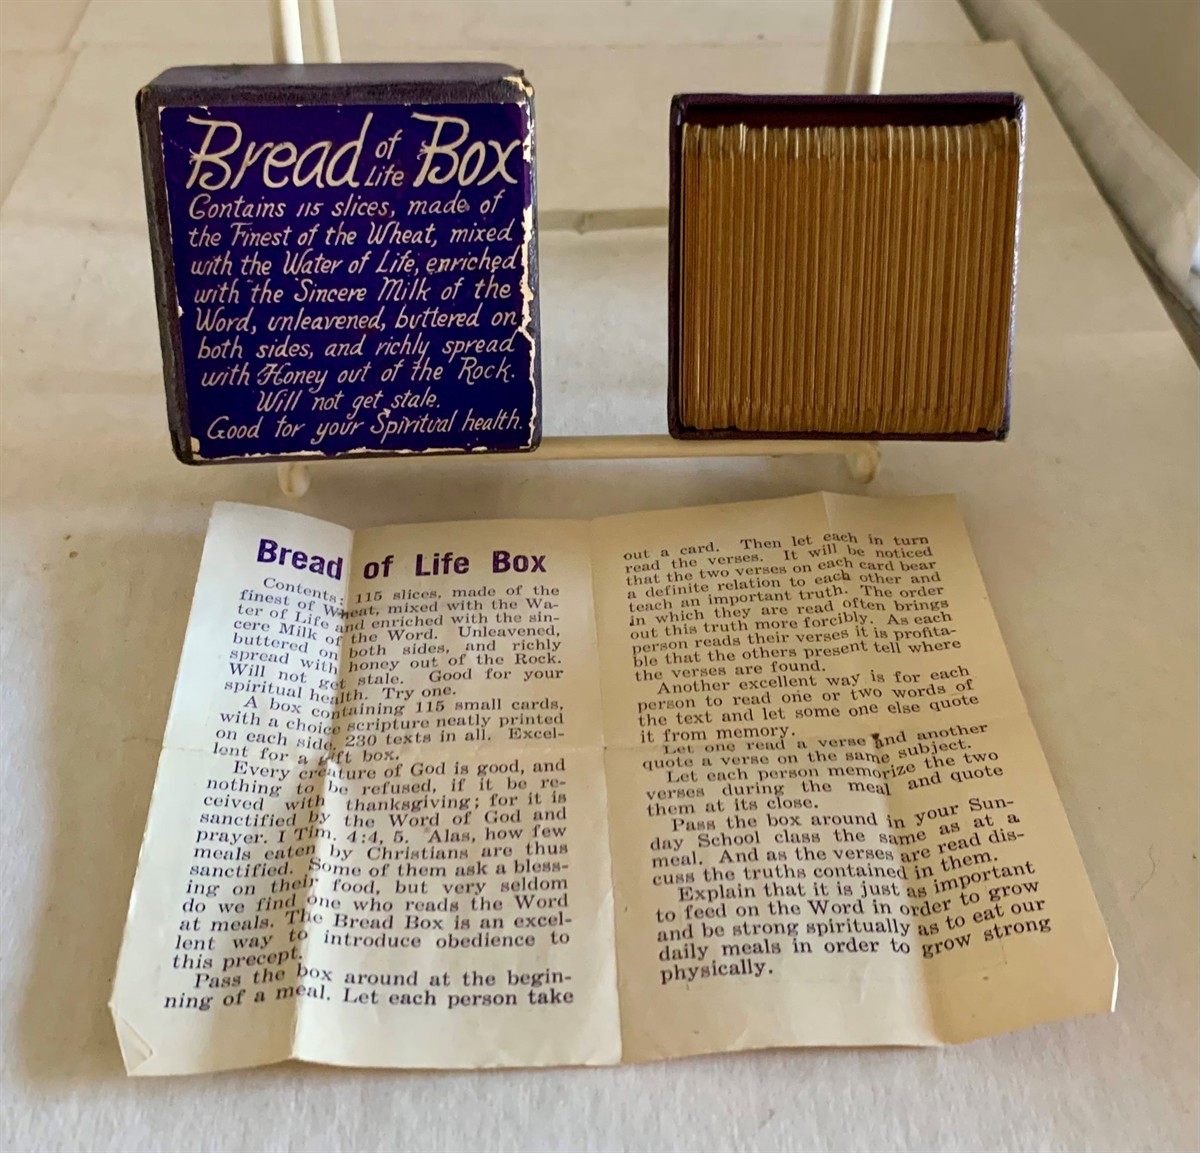 Bread of Life Box
Contains 115 slices, made of
the Finest of the Wheat, mixed
with the Water of Life, enriched
with the Sincere Milk of the
Word, unleavened, buttered on
both sides, and richly spread
with Honey out of the Rock.
Will not get stale.
Good for your Spiritual health.
Bread of Life Box
Contents: 115 slices, made of the
finest of Wheat, mixed with the Wa-
ter of Life and enriched with the sin-
cere Milk of the Word. Unleavened,
buttered on both sides, and richly
spread with honey out of the Rock.
Will not get stale. Good for your
spiritual health. Try one.
A box containing 115 small cards,
with a choice scripture neatly printed
on each side, 230 texts in all. Excel-
lent for a gift box.
Every creature of God is good, and
nothing to be refused, if it be re-
ceived with thanksgiving; for it is
sanctified by the Word of God and
prayer. I Tim. 4:4, 5. Alas, how few
meals eaten by Christians are thus
sanctified. Some of them ask a bless-
ing on their food, but very seldom
do we find one who reads the Word
at meals. The Bread Box is an excel-
lent way to introduce obedience to
this precept.
Pass the box around at the begin-
ning of a meal. Let each person take
out a card. Then let each in turn
read the verses. It will be noticed
that the two verses on each card bear
a definite relation to each other and
teach an important truth. The order
in which they are read often brings
out this truth more forcibly. As each
person reads their verses it is profita-
ble that the others present tell where
the verses are found.
Another excellent way is for each
person to read one or two words of
the text and let some one else quote
it from memory.
Let one read a verse and another
quote a verse on the same subject.
Let each person memorize the two
verses during the meal and quote
them at its close.
Pass the box around in your Sun-
day School class the same as at a
meal. And as the verses are read dis-
cuss the truths contained in them.
Explain that it is just as important
to feed on the Word in order to grow
and be strong spiritually as to eat our
daily meals in order to grow strong
physically.